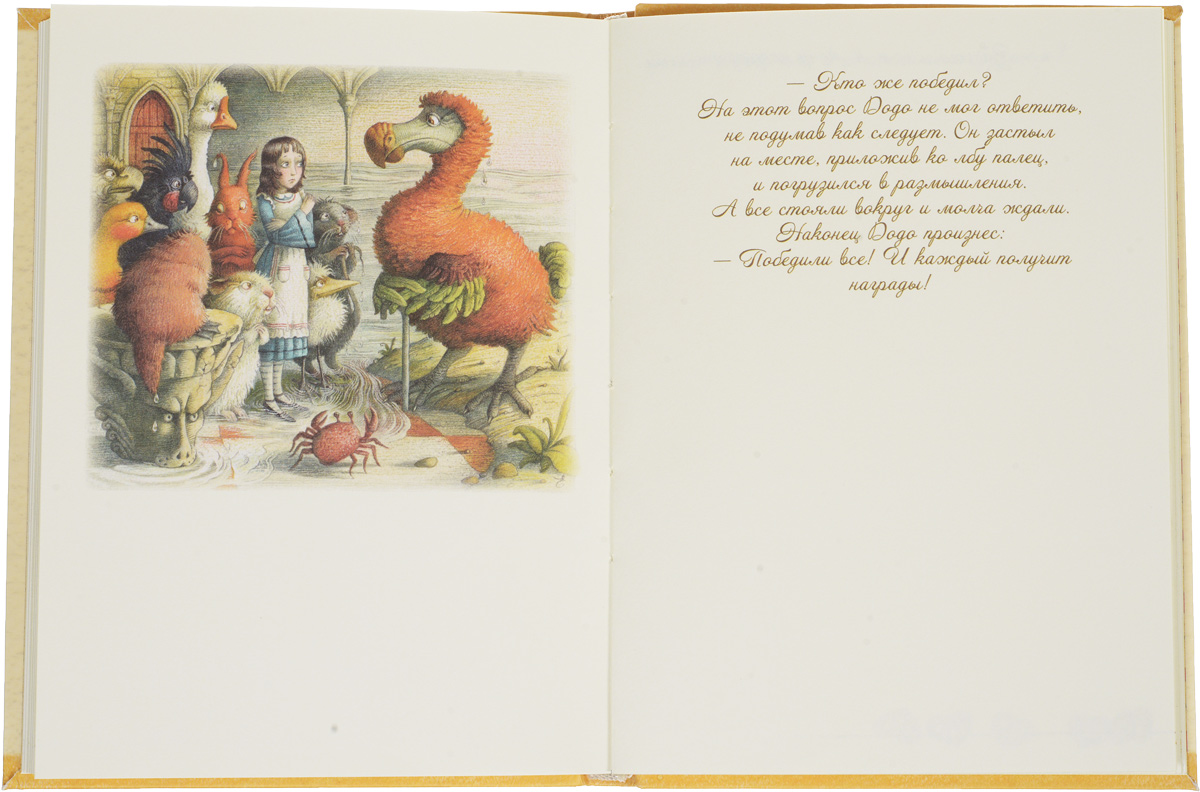 — Кто же победил?
На этот вопрос Додо не мог ответить,
не подумав как следует. Он застыл
на месте, приложив ко лбу палец,
и погрузился в размышления.
А все стояли вокруг и молча ждали.
Наконец Додо произнес:
— Победили все! И каждый получит
награды!